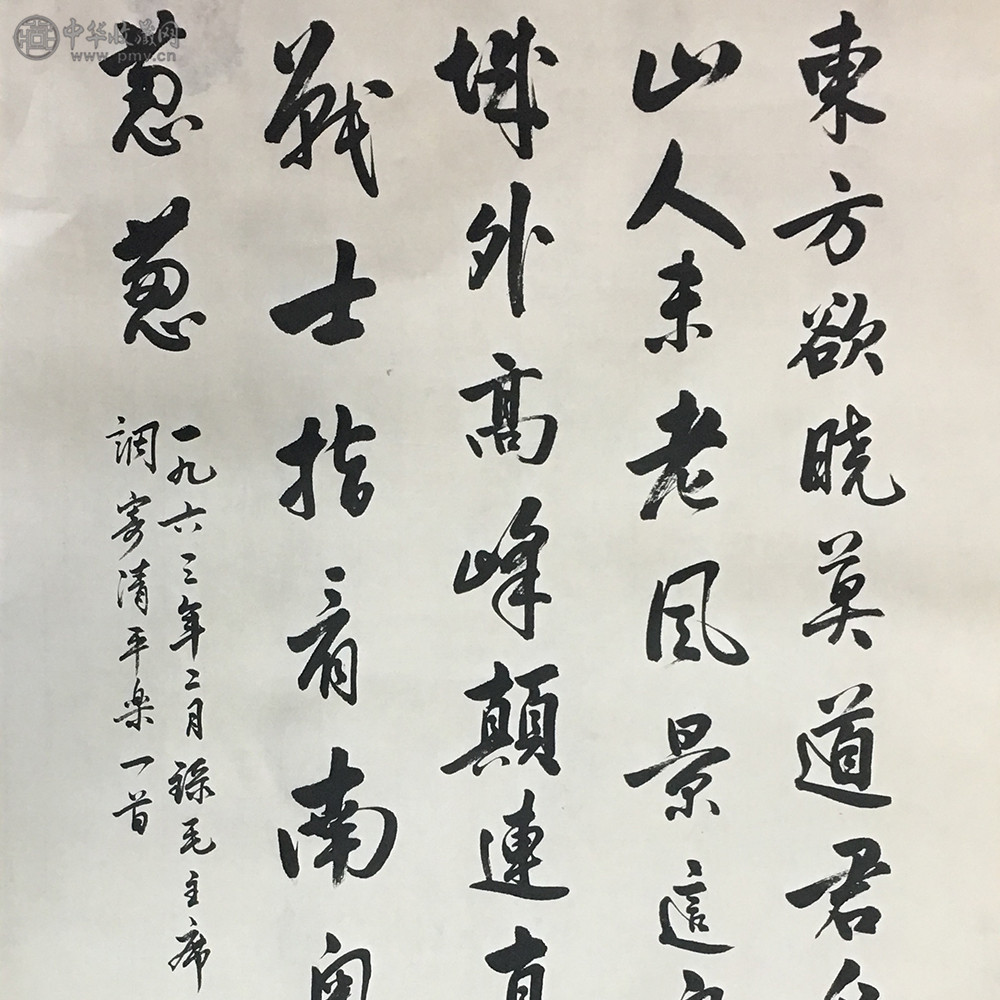 東方欲曉莫道君
山人未老風景這
城外高峰顛連直
戰士指看南粵
蔥蔥
一九六三年二月錄毛主席
調寄清平樂一首
中华收藏网
www.pmy.cn